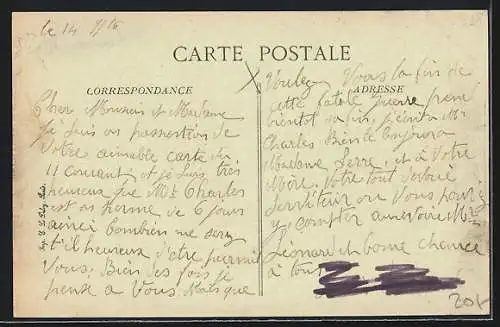 le 14
CARTE POSTALE
CORRESPONDANCE
Cher Monsieur et Madame
Je suis en possestion de
Votre aimable carte du
11 courant et je suis très
heureux que Mr Charles
est en perme de 6 jours
ainsi Combien ne sera
t'il heureux d'etre parmit
Vous. Bien des fois je
pense a Vous. Mais que
ADRESSE
Voulez Vous la fin de
cette fatale guerre prene
bientot sa fin, j'écris a Mr
Charles Bien le bonjour a
Madame Serre, et a Votre
Mère. Votre tout devoué
Serviteur ou Vous pouvez
y compter au revoire
Léonard et bonne chance
a tout